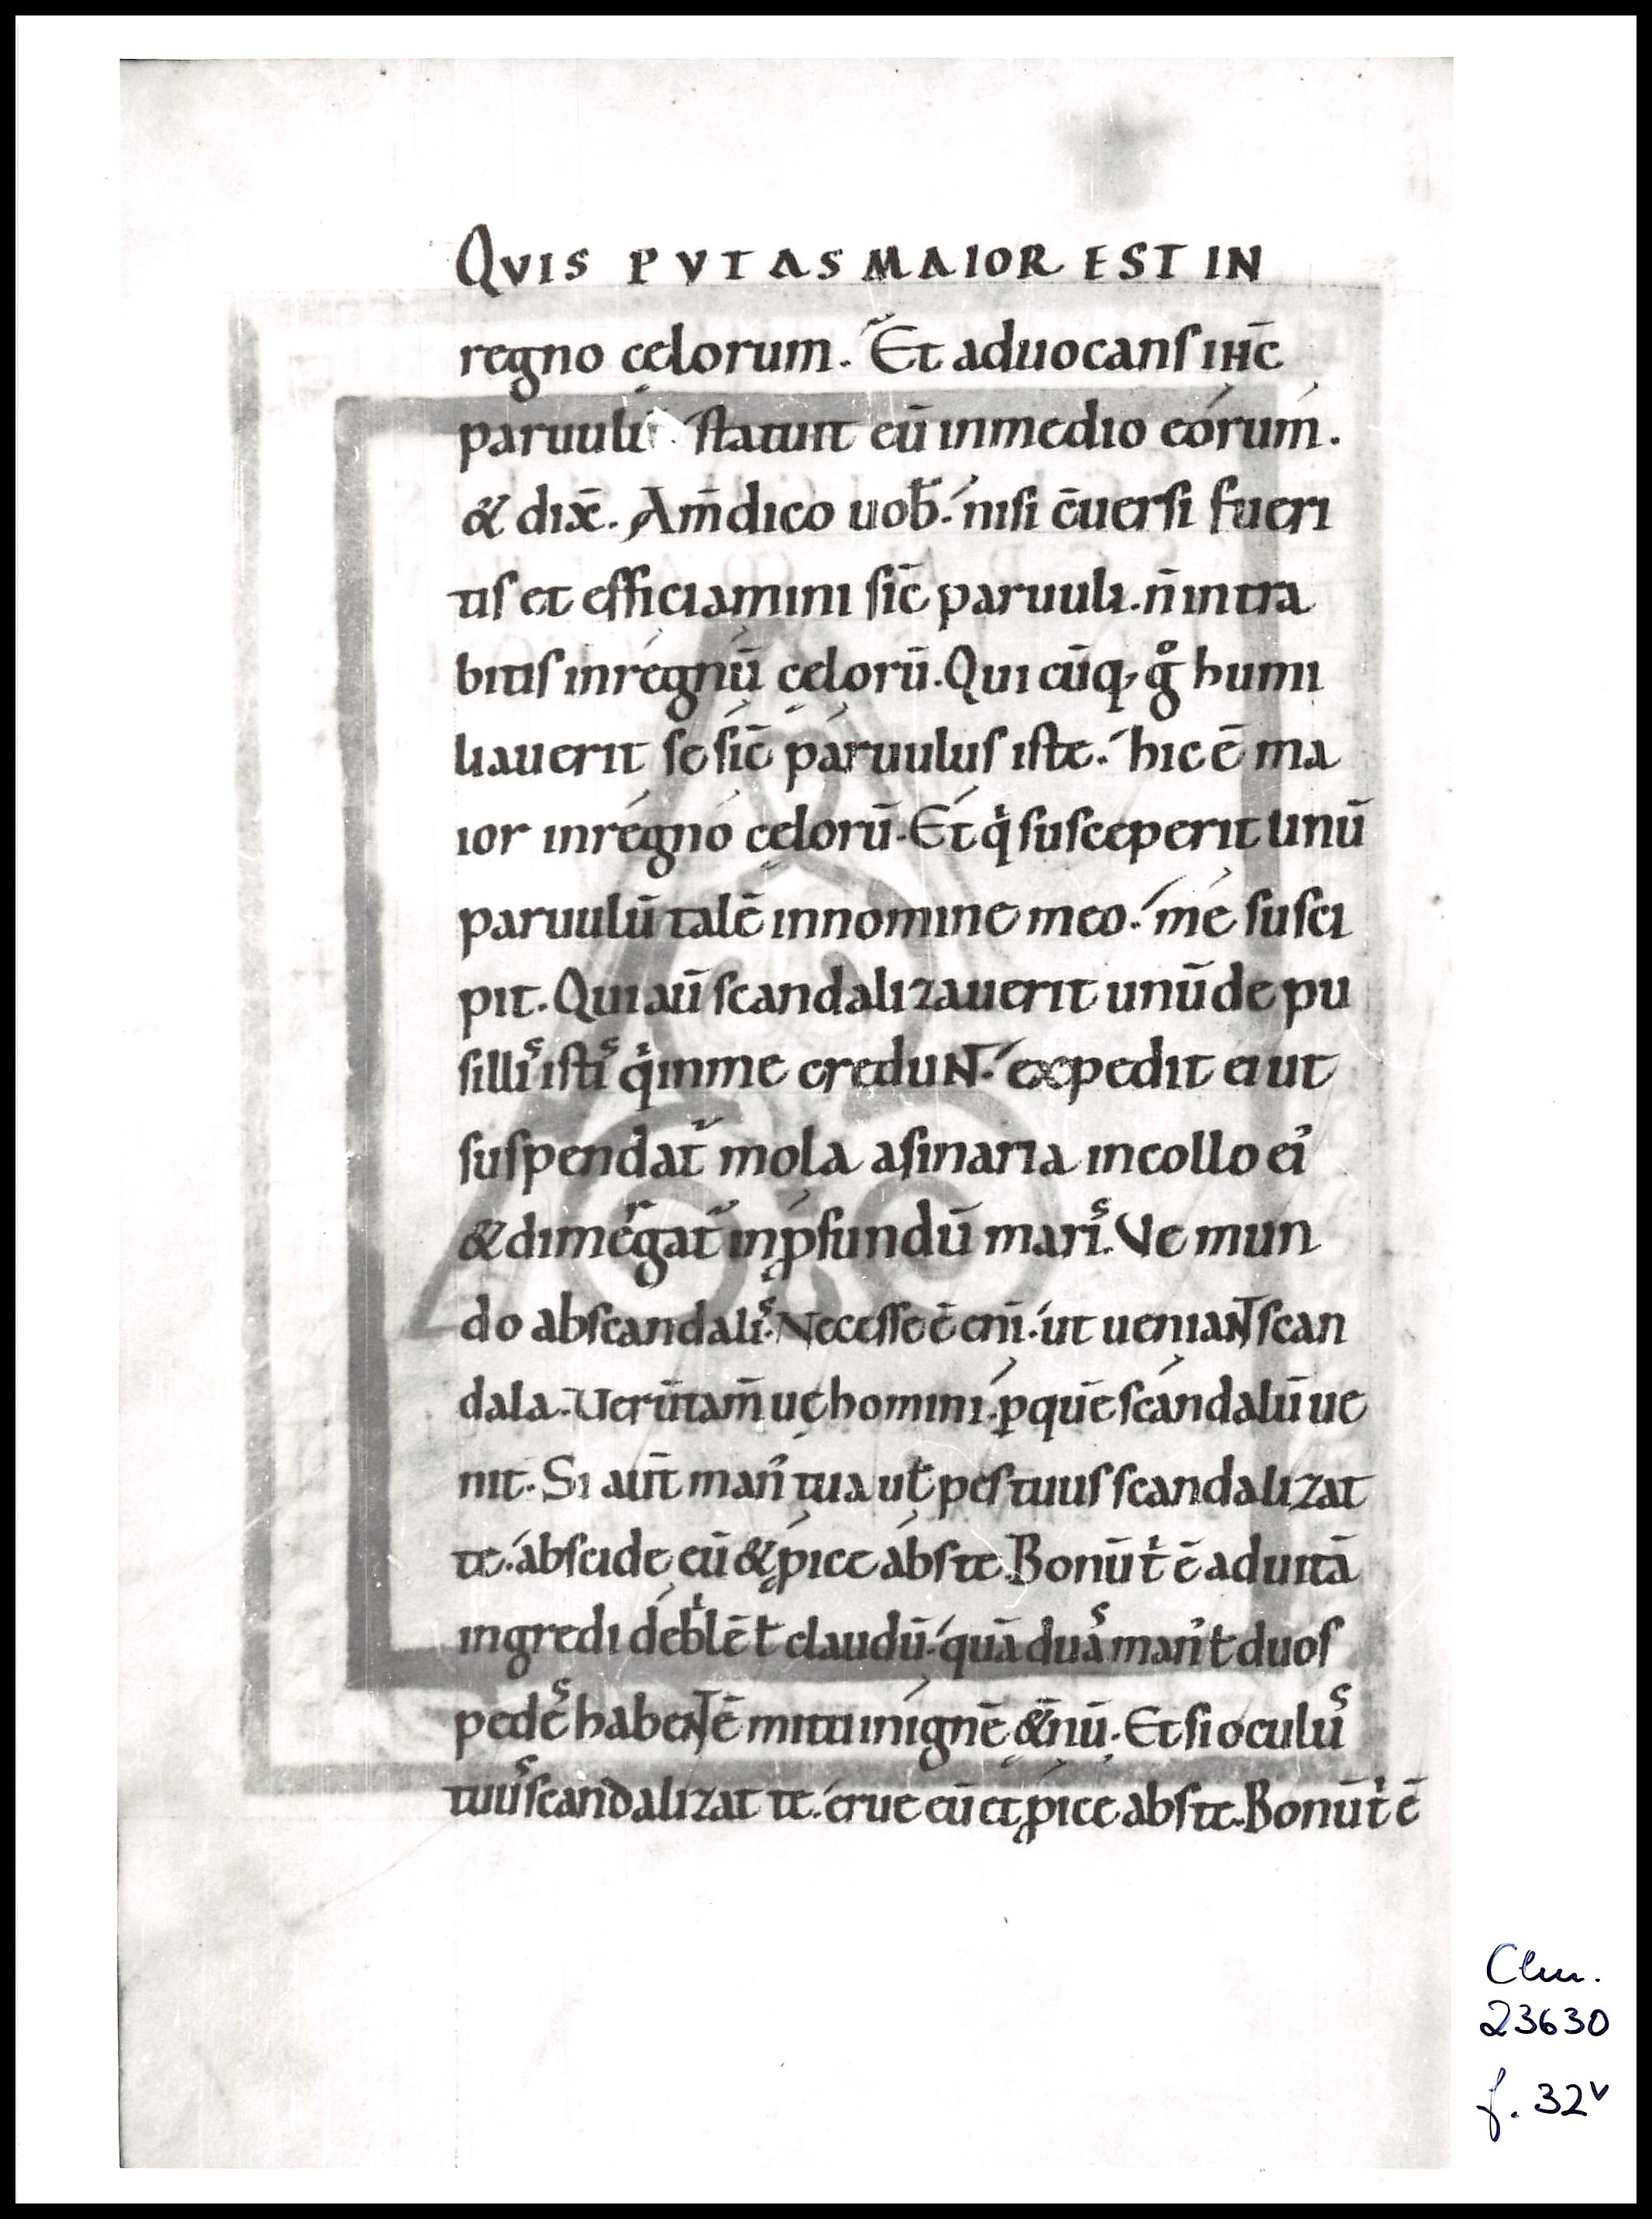 QVIS PVTAS MAIOR EST IN
regno cęlorum. Et aduocans ihc̄
paruulū statuit eū in medio eorum.
& dix̄. Am̄ dico uob̄. nisi c̄uersi fueri
tis et efficiamini sic̄ paruuli. n̄ intra
bitis in regnū cęlorū. Qui cūq; gͦ humi
liauerit se sic̄ paruulus iste. hic ē ma
ior in regno cęlorū. Et qⁱ susceperit unū
paruulū talē in nomine meo. me susci
pit. Qui aū scandalizauerit unū de pu
sillis istis qⁱ in me credunt. expedit ei ut
suspendat᷑ mola asinaria in collo ei᾿
& dimergat᷑ in ꝓfundū maris. Ve mun
do ab scandalis. Necesse ē eni̅. ut ueniant scan
dala. Uerūtam̄ uę homini. ꝑ quē scandalū ue
nit. Si aūt man᾿ tua ut̄ pes tuus scandalizat
te. abscide eū & ꝓice abs te. Bonū tⁱ ē ad uitā
ingredi debⁱlē ł claudū. quā duas man᾿ ł duos
pedes habentē mitti in ignē &̄nū. Et si oculus
tuus scandalizat te. erue eū et ꝓice abs te. Bonū tⁱ ē
Clm.
23630
f. 32ᵛ